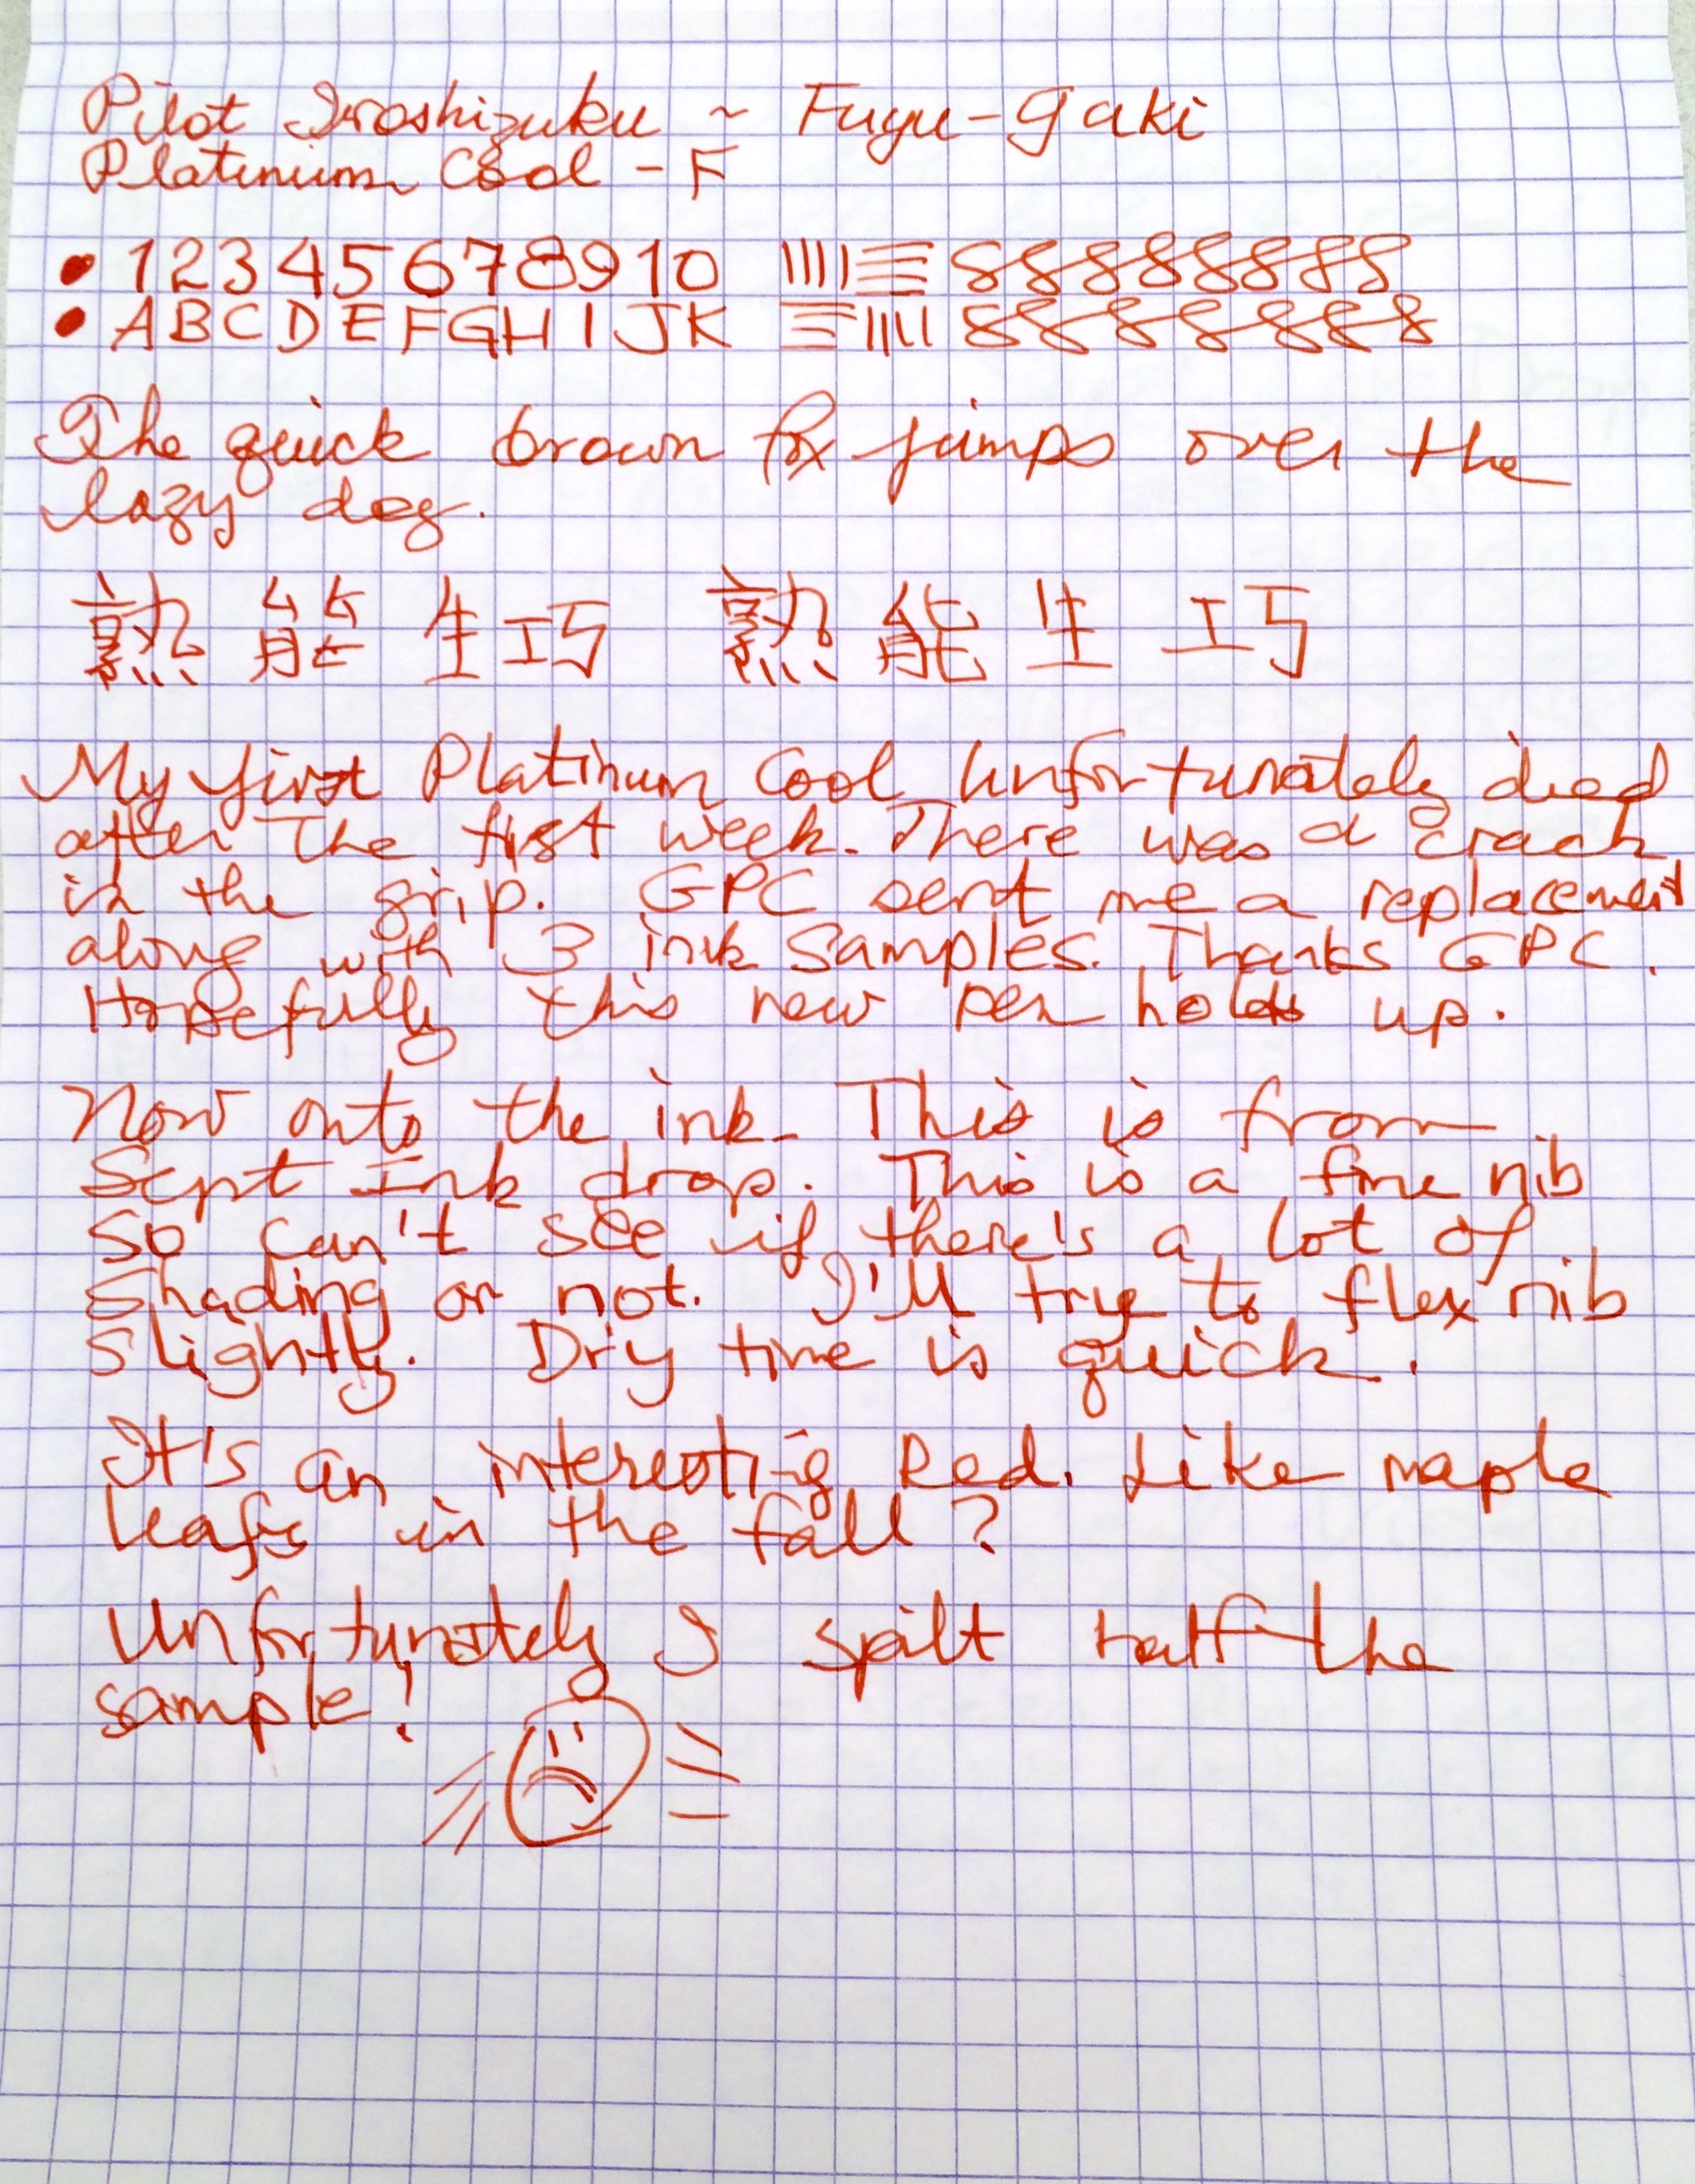 Pilot Iroshizuku ~ Fuyu-gaki
Platinum Cool - F
1 2 3 4 5 6 7 8 9 10
A B C D E F G H I J K
The quick brown fox jumps over the
lazy dog.
熟 能 生 巧 熟 能 生 巧
My first Platinum Cool unfortunately died
after the first week. There was a crack
in the grip. GPC sent me a replacement
along with 3 ink samples. Thanks GPC.
Hopefully this new pen holds up.
Now onto the ink. This is from
Sept Ink drop. This is a fine nib
so can't see if there's a lot of
shading or not. I'll try to flex nib
slightly. Dry time is quick.
It's an interesting Red. Like maple
leafs in the fall?
Unfortunately I spilt half the
sample!